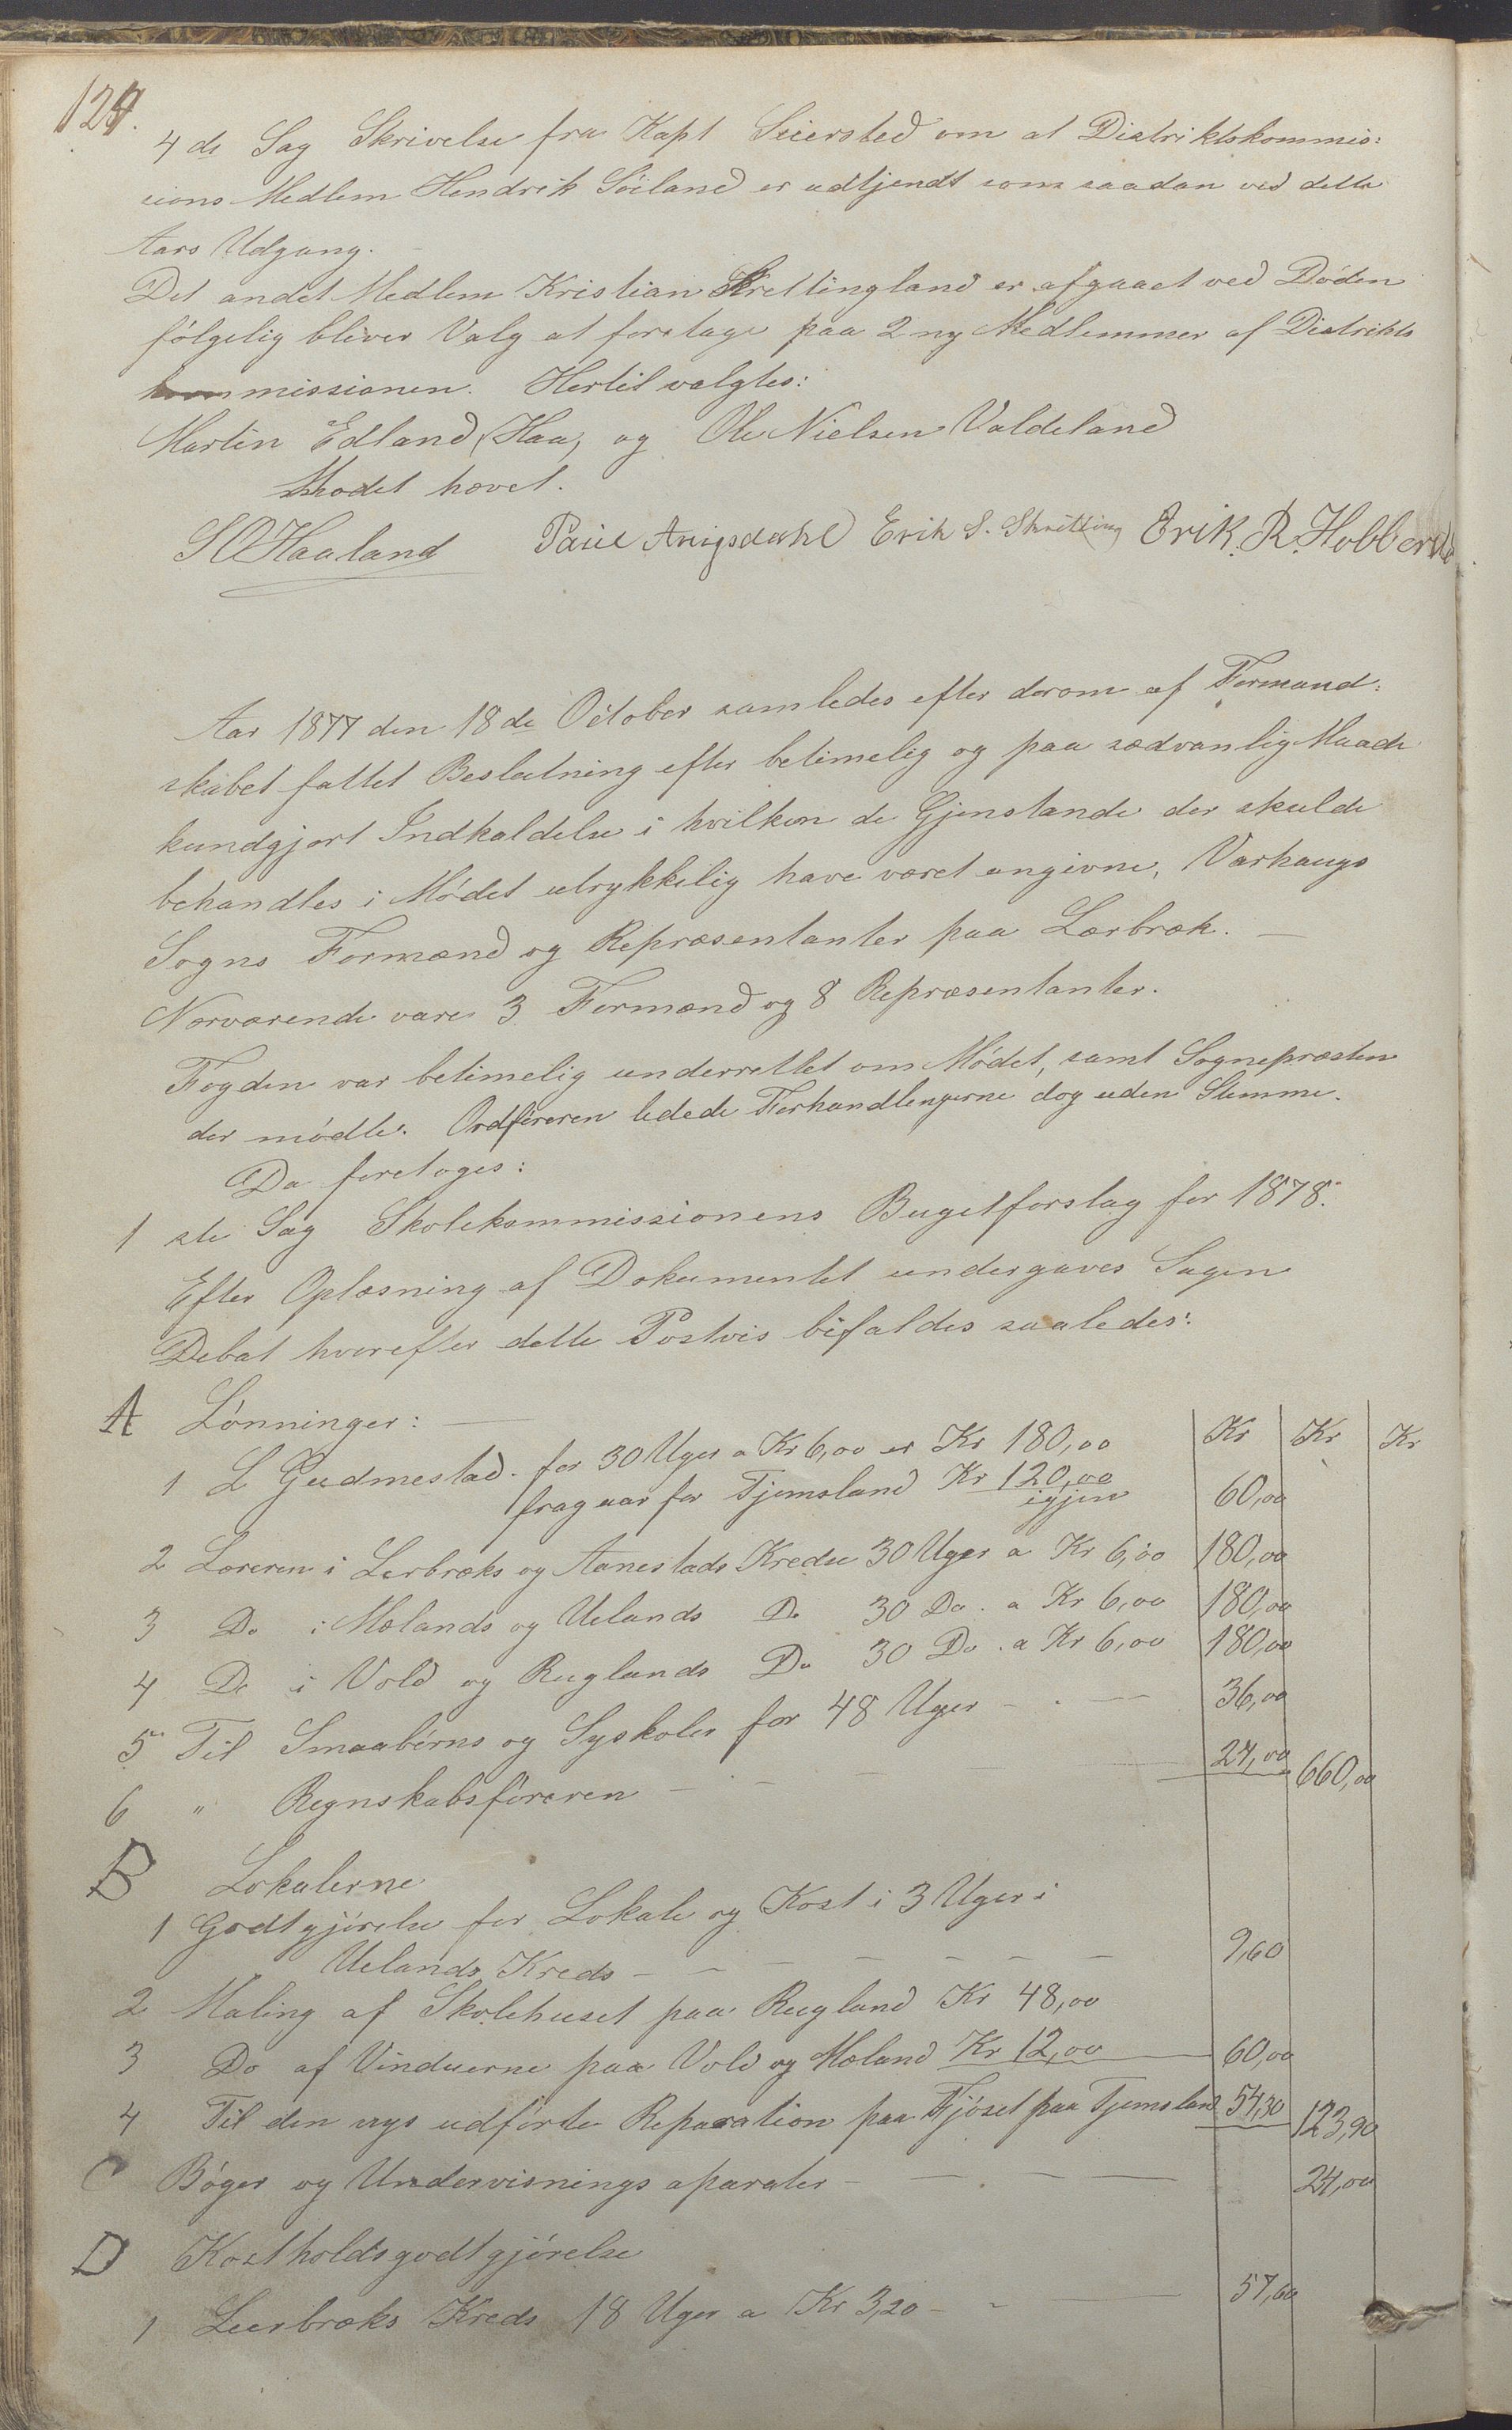 124.
4de Sag Skrivelse fra Kapt Seiersted om at Distriktskommis:
sions Medlem Hendrik Söiland er udtjendt som saadan ved dette
Aars Udgang.
Det andet Medlem Kristian Skrettingland er afgaaet ved Döden
fölgelig bliver Valg at foretage paa 2 ny Medlemmer af Distrikts
kommissionen. Hertil valgtes:
Martin Edland (Haa) og Ole Nielsen Valdeland
Modet hævet.
S O Haaland Paul Anigsdahl Erik S. Skretting Erik. R. Hobberstd
Aar 1877 den 18de October samledes efter derom af Formand:
skabet fattet Beslutning efter betimelig og paa sædvanlig Maade
kundgjort Indkaldelse i hvilken de Gjenstande der skulde
behandles i Mödet udtrykkelig have været angivne, Varhaugs
Sogns Formænd og Repræsentanter paa Lerbræk.
Nærværende vare 3 Formænd og 8 Repræsentanter.
Fogden var betimelig underrettet om Mödet, samt Sognepræsten
der mödte. Ordföreren ledede Forhandlingerne dog uden Stemme.
Da foretoges:
1 ste Sag Skolekommissionens Bugetforslag for 1878.
Efter Oplæsning af Dokumentet undergaves Sagen
Debat hvorefter dette Postvis bifaldes saaledes:
A Lönninger: Kr Kr Kr
1 L Gudmestad. for 30 Uger a Kr 6,00 er Kr 180,00
fragaar for Tjemsland Kr 120,00
igjen 60,00
2 Læreren i Lerbræks og Aanestads Kredse 30 Uger a Kr 6,00 180,00
3 Do i Mælands og Uelands Do 30 Do. a Kr 6,00 180,00
4 Do i Vold og Ruglands Do 30 Do. a Kr 6,00 180,00
5 Til Smaabörns og Syskoler for 48 Uger 36,00
6 " Regnskabsföreren 24,00 660,00
B Lokalerne
1 Godtgjörelse for Lokale og Kost i 3 Uger i
Uelands Kreds 9,60
2 Maling af Skolehuset paa Rugland Kr 48,00
3 Do af Vinduerne paa Vold og Mæland Kr 12,00 60,00
4 Til den nys udförte Reparation paa Fjöset paa Tjemsland 54,30 123,90
C Böger og Undervisnings aparater 24,00
D Kostholdsgodtgjörelse
1 Leerbræks Kreds 18 Uger a Kr 3,20 57,60